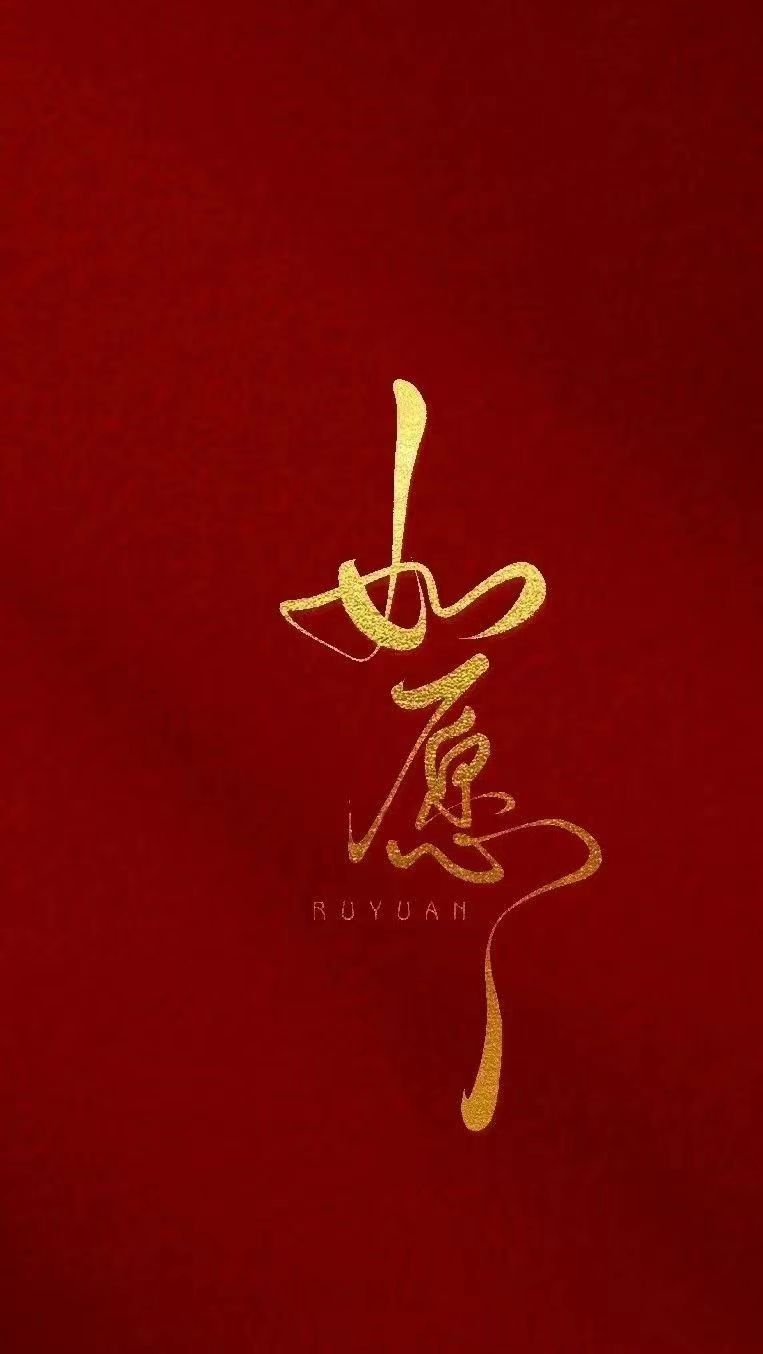 如
愿
RUYUAN